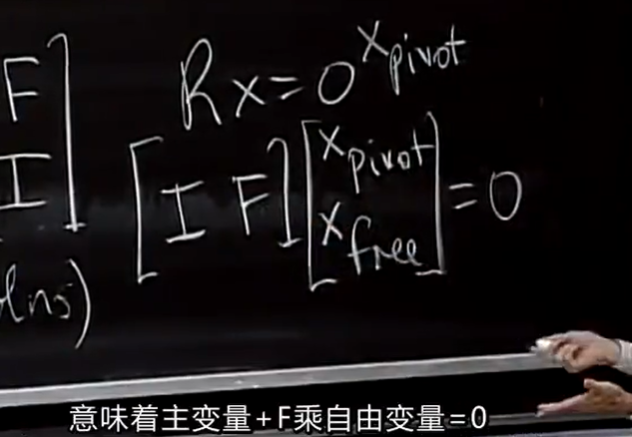 F
I
lns)
Rx=0
x pivot
[I F] [x pivot
x free] =0
意味着主变量+F乘自由变量=0